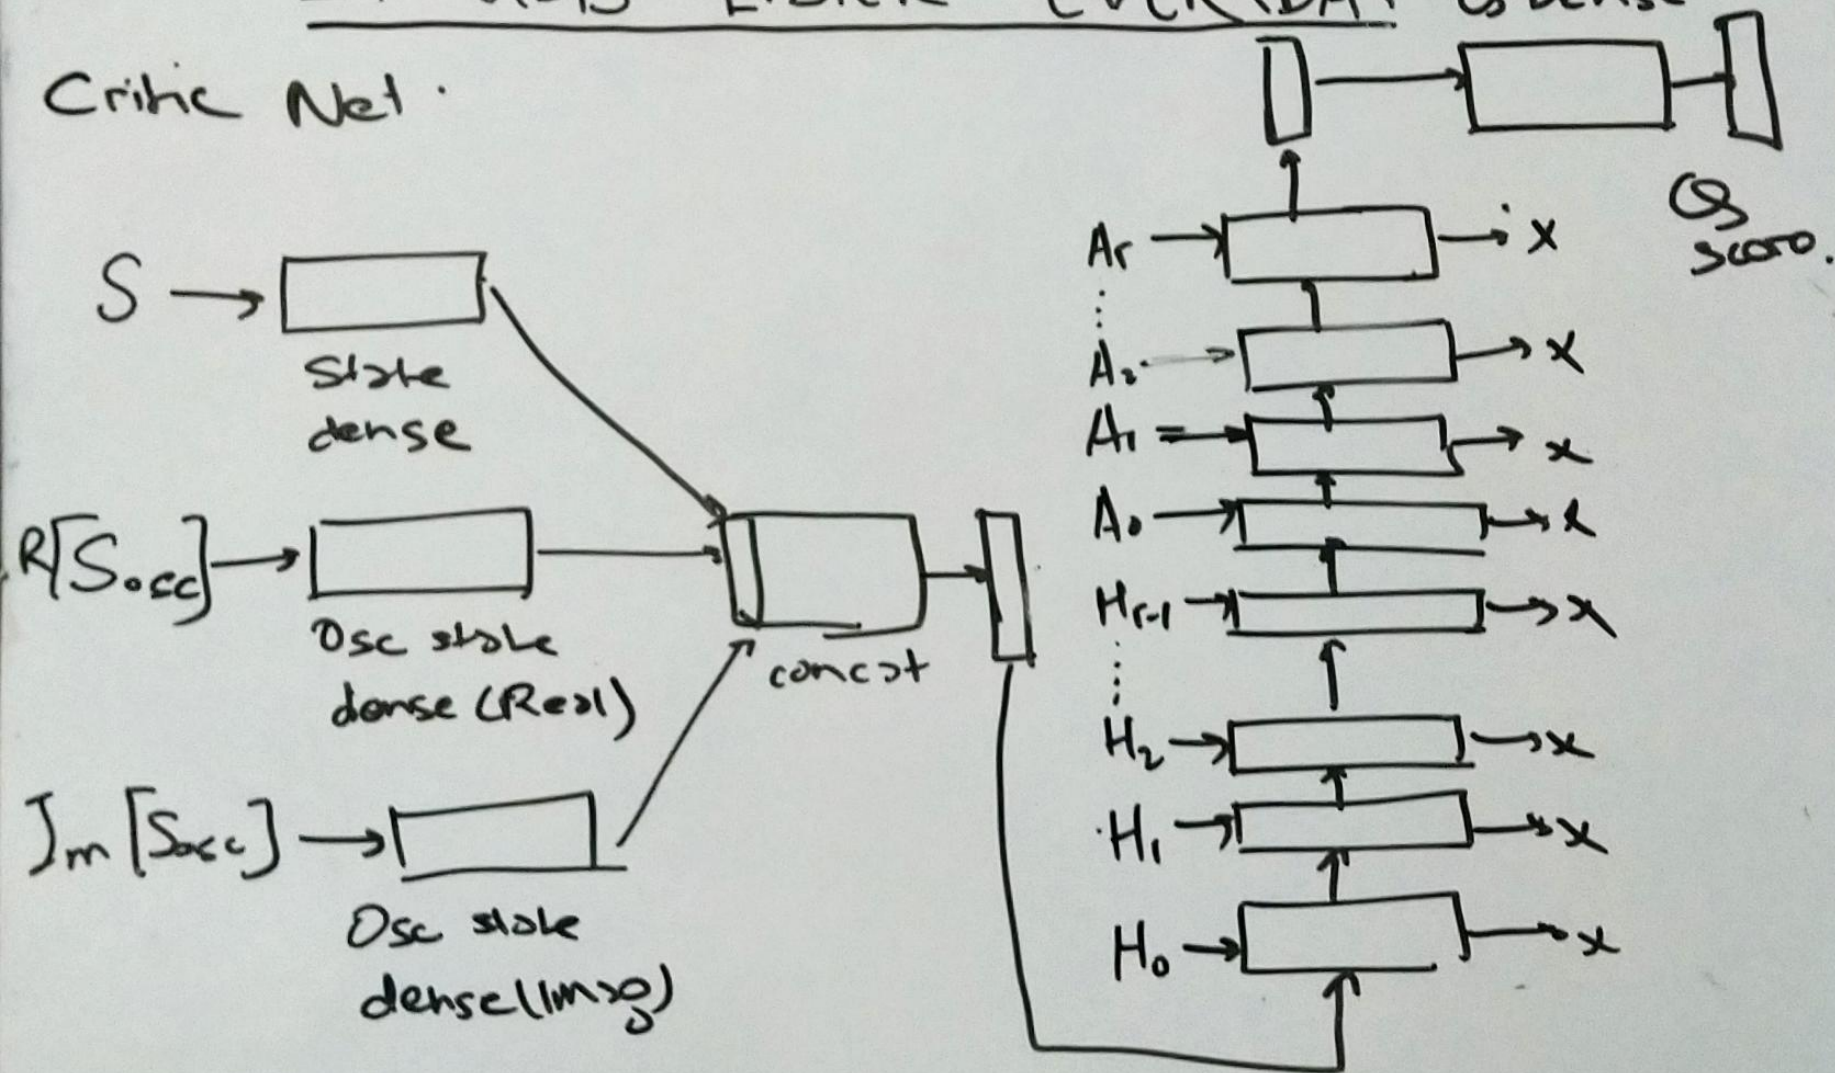 Critic Net.
S
State
dense
R[Sosc]
Osc state
dense (Real)
Im[Sosc]
Osc state
dense (Imag)
concat
Ar
x
A2
x
A1
x
A0
x
Hr-1
x
H2
x
H1
x
H0
x
Qs
score.